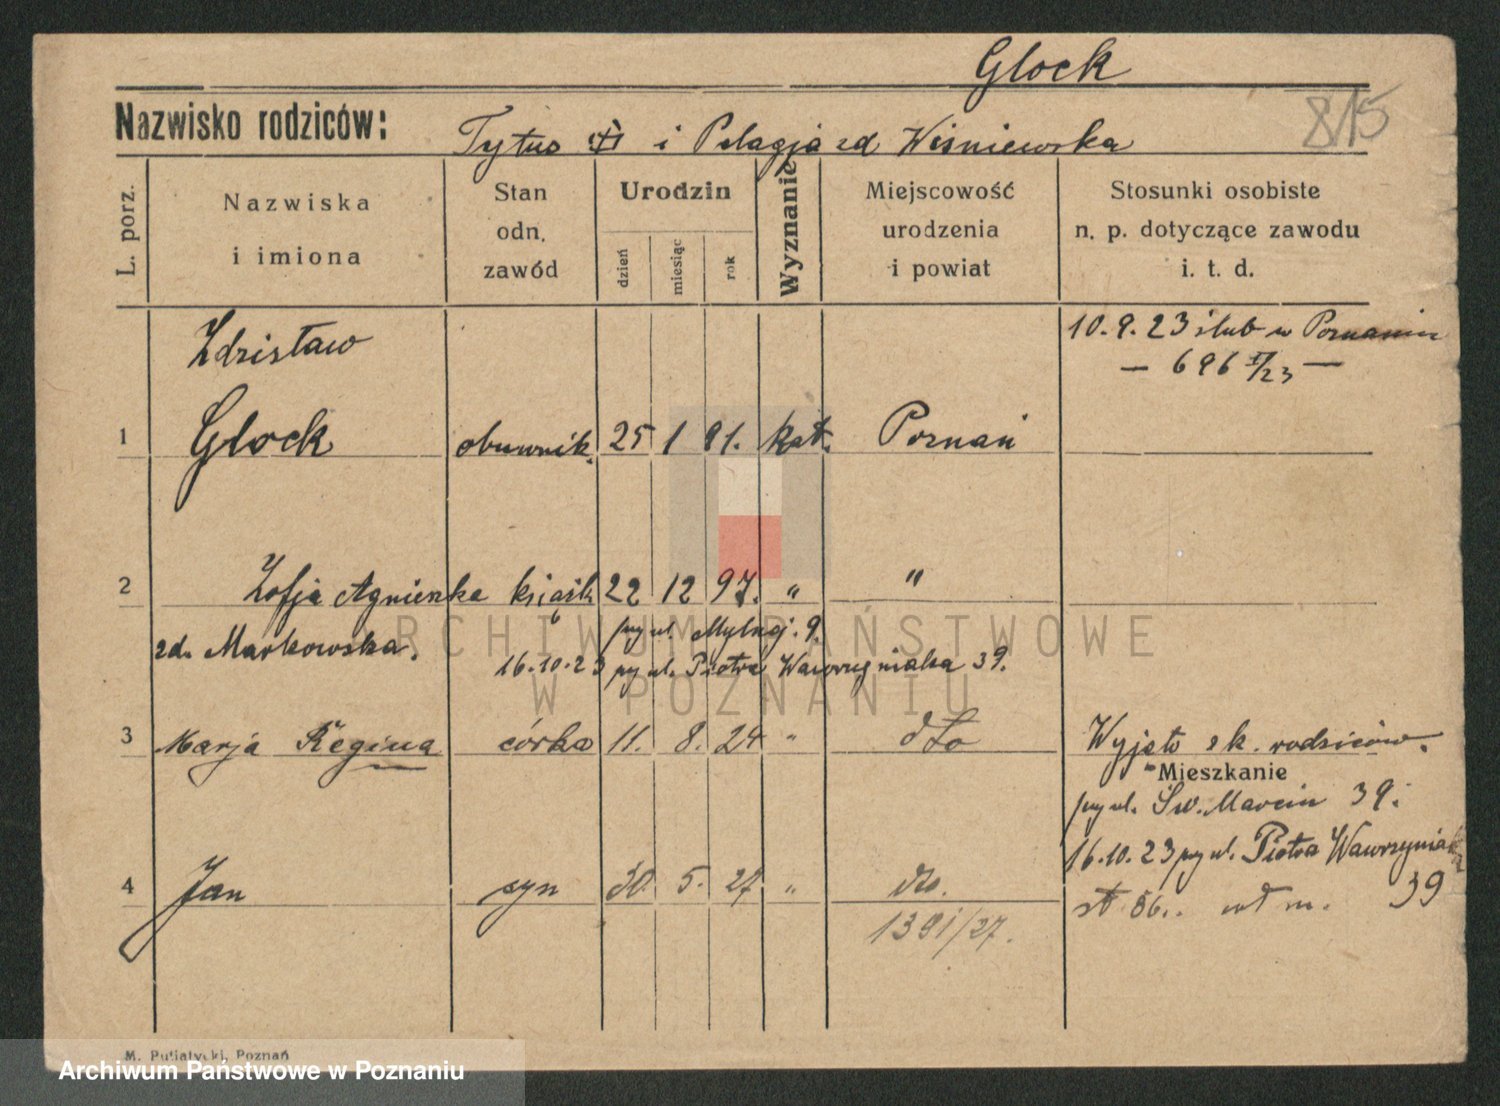 Glock
815
Nazwisko rodziców: Tytus i Pelagja zd Wiśniewska
L. porz.
Nazwiska i imiona
Stan odn. zawód
Urodzin
dzień
miesiąc
rok
Wyznanie
Miejscowość urodzenia i powiat
Stosunki osobiste n. p. dotyczące zawodu i. t. d.
Zdzisław
10.9.23 ślub w Poznaniu
— 696 /23 —
1 Glock obuwnik. 25 1 91. kat. Poznań
2 Zofja Agnieszka książk 22 12 97. " "
zd. Markowska.
przy ul. Mylnej. 9.
16.10.23 przy ul. Piotra Wawrzyniaka 39.
3 Marja Regina córka 11. 8. 24 " dto
Wyjęto z k. rodziców.
Mieszkanie
przy ul. Św. Marcin 39.
16.10.23 przy ul. Piotra Wawrzyniaka
39
4 Jan syn 30. 5. 27 " dto.
1391/27.
M. Putiatycki, Poznań
ARCHIWUM PAŃSTWOWE
W POZNANIU
Archiwum Państwowe w Poznaniu